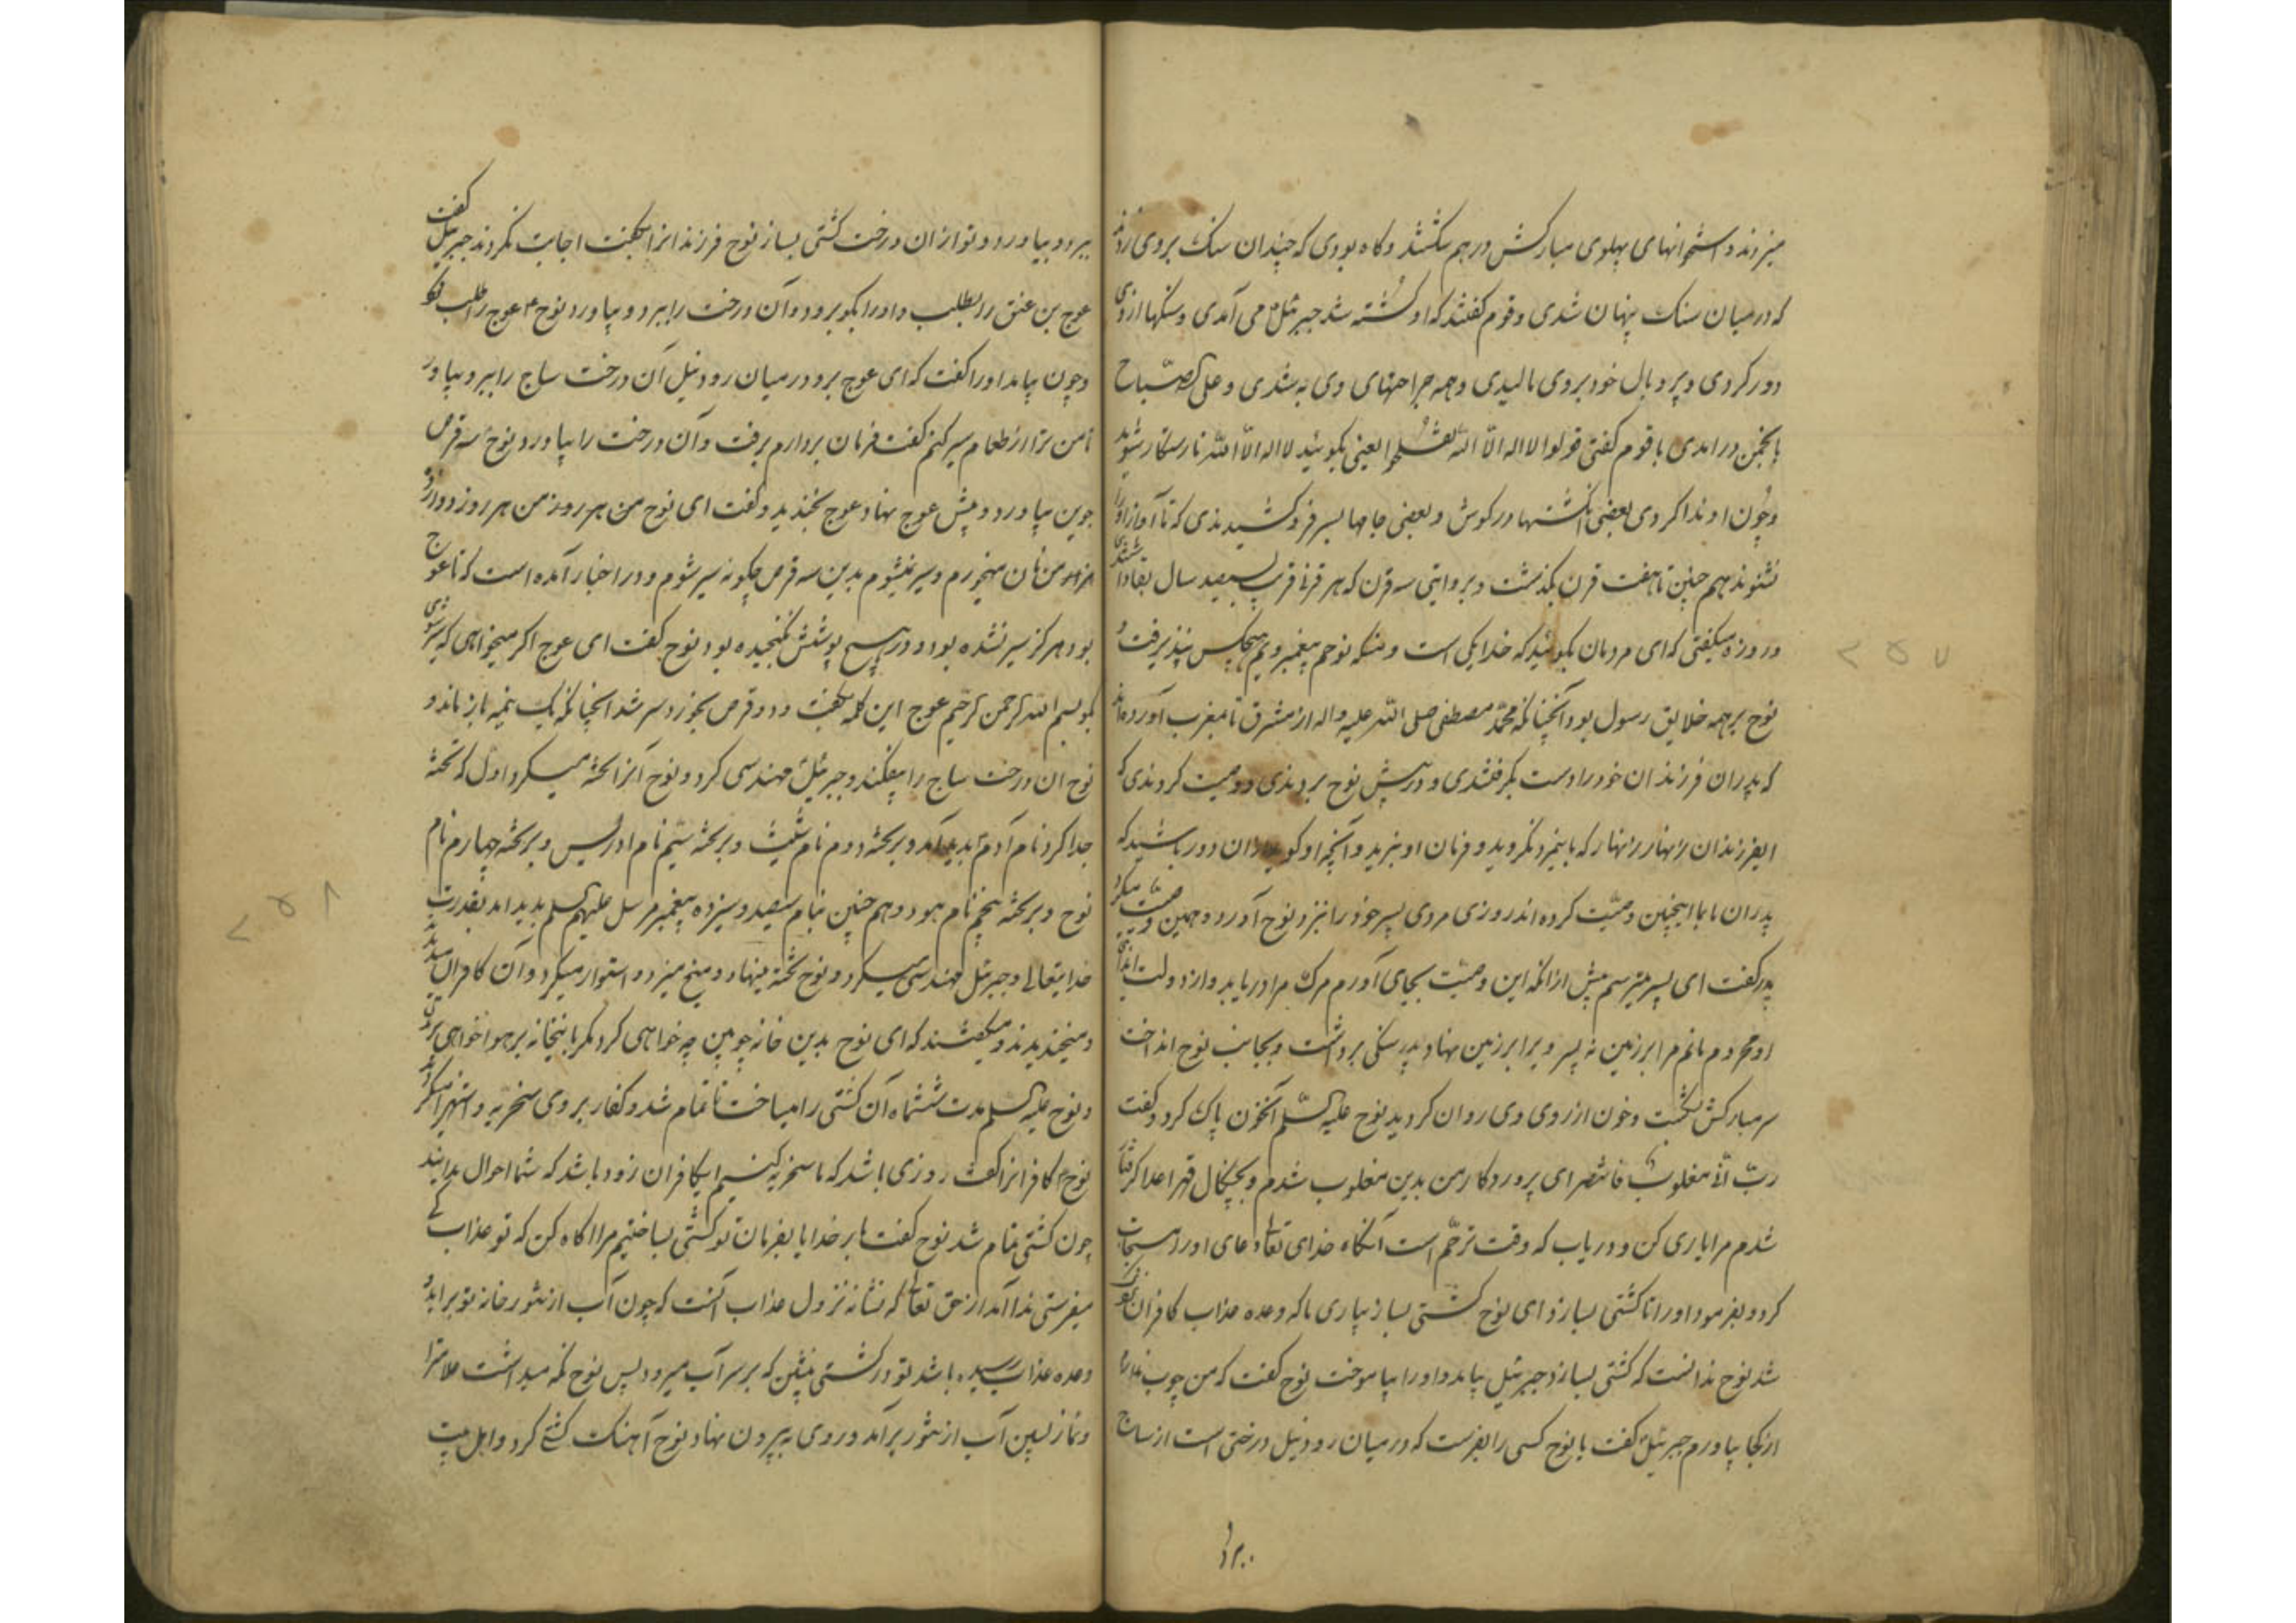 میزدند و استخوانهای پهلوی مبارکش درهم شکستند و گاه بودی که چندان سنک بروی زدند
که در میان سنک پنهان شدی و قوم گفتند که او کشته شد جبرئیل می آمدی و سنکها از وی
دور کردی و پر و بال خود بر وی مالیدی و همه جراحتهای وی به شدی و علی الصّباح
بانجمن در آمدی با قوم گفتی قولوا لا اله الّا اللّه تفلحوا یعنی بکوئید لا اله الّا اللّه تا رستکار شوید
و چون او ندا کردی بعضی انکشتها در کوش و بعضی جامها بسر فرو کشیدندی که تا آواز او را
نشنوند همچنین تا هفت قرن بکذشت و بروایتی سه قرن که هر قرنی قریب سیصد سال
در وزه میکفتی که ای مردمان بکوئید که خدا یکی است و منکه نوحم پیغمبر ویم هیچکس نپذیرفت و
نوح بر همه خلایق رسول بود آنچنانکه محمّد مصطفی صلی اللّه علیه و اله از مشرق تا مغرب آورده اند
که پدران فرزندان خود را دست بکرفتندی و در پیش نوح بردندی و وصیت کردندی که
ایفرزندان زنهار زنهار که باینمرد نکروید و فرمان او نبرید و آنچه او کوید از آن دور باشید که
پدران ما با ما اینچنین وصیّت کرده اند روزی مردی پسر خود را بنزد نوح آورد و همین وصیّت میکرد
پدر کفت ای پسر میترسم پیش از انکه این وصیّت بجای آورم مرک مرا دریابد و از دولت ایذای
او محروم مانم مرا بر زمین نه پسر ویرا بر زمین نهاد پدر سنکی برداشت و بجانب نوح انداخت
سر مبارکش بشکست و خون از روی وی روان کردید نوح علیه السّلم آنخون پاک کرد و کفت
ربّ انّی مغلوب فانتصر ای پروردکار من بدین مغلوب شدم و بچنکال قهر اعدا کرفتار
شدم مرا یاری کن و دریاب که وقت ترحّم است آنکاه خدای تعالی دعای او را مستجاب
کرد و بفرمود او را تا کشتی بسازد ای نوح کشتی بساز بیاری ما که وعده عذاب کافران نزدیک
شد نوح ندانست که کشتی بسازد جبرئیل بیامد و او را بیاموخت نوح کفت که من چوب ندارم
از کجا بیاورم جبرئیل کفت یا نوح کسی را بفرست که در میان رود نیل درختی است از ساج
ببرد و بیاورد و تو از ان درخت کشتی بساز نوح فرزندانرا بکفت اجابت نکردند جبرئیل کفت
عوج بن عنق را بطلب و او را بکو برود و آن درخت را ببرد و بیاورد نوح عوج را طلب کرد
و چون بیامد او را کفت که ای عوج برو در میان رود نیل آن درخت ساج را ببر و بیاور
تا من ترا از طعام سیر کنم کفت فرمان بردارم برفت و آن درخت را بیاورد نوح سه قرص
جوین بیاورد و پیش عوج نهاد عوج بخندید و کفت ای نوح من هر روز من هر روز دوازده
هزار من نان میخورم و سیر نمیشوم بدین سه قرص چکونه سیر شوم و در اخبار آمده است که تا عوج
بود هرکز سیر نشده بود و در هیچ پوشش نکنجیده بود نوح کفت ای عوج اکر میخواهی که سیر شوی
بکو بسم اللّه الرحمن الرحیم عوج این کلمه بکفت و دو قرص بخورد سیر شد آنچنانکه یک نیمه باز ماند و
نوح ان درخت ساج را بیفکند و جبرئیل مهندسی کرد و نوح آنرا تخته میکرد اول که تخته
جدا کرد نام آدم بدید آمد و بر تخته دوم نام شیث و بر تخته سیّم نام ادریس و بر تخته چهارم نام
نوح و بر تخته پنجم نام هود و همچنین بنام سیصد و سیزده پیغمبر مرسل علیهم السلم بدید امد بقدرت
خدایتعالی و جبرئیل مهندسی میکرد و نوح تخته مینهاد و میخ میزد و استوار میکرد و آن کافران میدیدند
و میخندیدند و میکفتند که ای نوح بدین خانه چوبین چه خواهی کرد مکر باینخانه بر هوا خواهی پرید
و نوح علیه السلم مدت ششماه آن کشتی را میساخت تا تمام شد و کفار بر وی سخریه و استهزا میکردند
نوح کافرانرا کفت روزی باشد که ما سخریه کنیم ایکافران زود باشد که شما احوال بدانید
چون کشتی تمام شد نوح کفت بار خدایا بفرمان تو کشتی بساختیم مرا اکاه کن که تو عذاب کی
میفرستی ندا آمد از حق تعالی که نشانه نزول عذاب آنست که چون آب از تنور خانه تو برآید و
وعده عذاب رسیده باشد تو در کشتی بنشین که بر سر آب میرود پس نوح نکه میداشت علامترا
و نماز پسین آب از تنور برآمد و روی به بیرون نهاد نوح آهنک کشتی کرد و اهل بیت
۲۵۷
۲۵۸